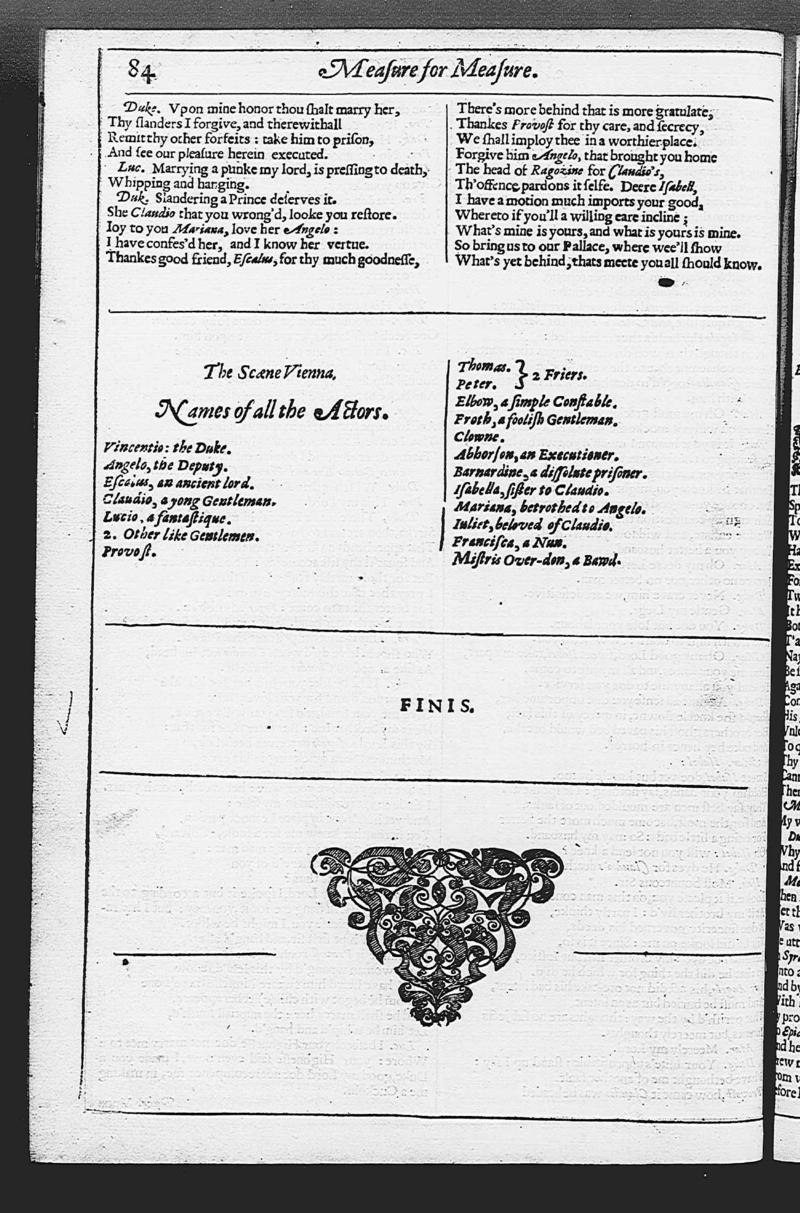 84 Meaſure for Meaſure.
Duke. Vpon mine honor thou ſhalt marry her,
Thy ſlanders I forgiue, and therewithall
Remit thy other forfeits : take him to priſon,
And ſee our pleaſure herein executed.
Luc. Marrying a punke my lord, is preſſing to death,
Whipping and hanging.
Duk. Slandering a Prince deſerves it.
She Claudio that you wrong'd, looke you reſtore.
Ioy to you Mariana, love her Angelo :
I have confes'd her, and I know her vertue.
Thankes good friend, Eſcalus, for thy much goodneſſe,
There's more behind that is more gratulate;
Thankes Provoſt for thy care, and ſecrecy,
We ſhall imploy thee in a worthier place.
Forgive him Angelo, that brought you home
The head of Ragozine for Claudio's,
Th'offence pardons it ſelfe. Deere Iſabell,
I have a motion much imports your good,
Whereto if you'll a willing eare incline ;
What's mine is yours, and what is yours is mine.
So bring us to our Pallace, where wee'll ſhow
What's yet behind, thats meete you all ſhould know.
The Scæne Vienna.
Names of all the Actors.
Vincentio : the Duke.
Angelo, the Deputy.
Eſcalus, an ancient lord.
Claudio, a yong Gentleman.
Lucio, a fantaſtique.
2. Other like Gentlemen.
Provoſt.
Thomas. } 2 Friers.
Peter.
Elbow, a ſimple Conſtable.
Froth, a fooliſh Gentleman.
Clowne.
Abhorſon, an Executioner.
Barnardine, a diſſolute priſoner.
Iſabella, ſiſter to Claudio.
Mariana, betrothed to Angelo.
Iuliet, beloved of Claudio.
Franciſca, a Nun.
Miſtris Over-don, a Bawd.
FINIS.